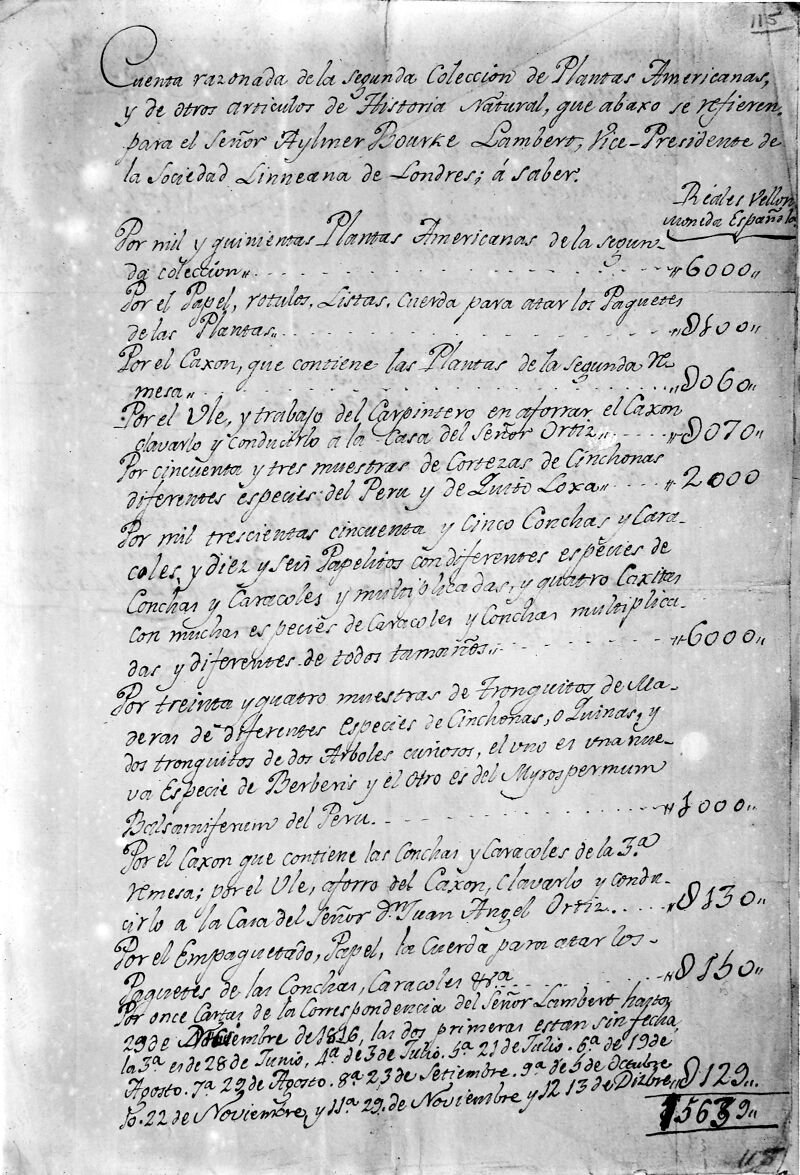 115
Cuenta razonada de la segunda Coleccion de Plantas Americanas,
y de otros articulos de Historia Natural, que abaxo se refieren,
para el Señor Aylmer Bourke Lambert, Vice-Presidente de
la Sociedad Linneana de Londres; á saber.
Reales Vellon
moneda Española
Por mil y quinientas Plantas Americanas de la segun-
da coleccion,, . . . . . . . . ,,6000,,
Por el Papel, rotulos, Listas, cuerda para atar los Paquetes
de las Plantas,, . . . . . . . . ,,8100,,
Por el Caxon, que contiene las Plantas de la segunda re
mesa,, . . . . . . . . ,,8060,,
Por el Ule, y trabajo del Carpintero en aforrar el Caxon
clavarlo y conducirlo a la Casa del Señor Ortiz,, . . . . ,,8070,,
Por cincuenta y tres muestras de Cortezas de Cinchonas
diferentes especies del Peru y de Quito Loxa,, . . . . ,,2000
Por mil trescientas cincuenta y cinco Conchas y Cara-
coles, y diez y seis Papelitos con diferentes especies de
Conchas y Caracoles y multiplicadas, y quatro Caxitas
con muchas especies de Caracoles y Conchas multiplica-
das y diferentes de todos tamaños,, . . . . . . ,,6000,,
Por treinta y quatro muestras de Tronquitos de Ma-
deras de diferentes Especies de Cinchonas, o Quinas, y
dos tronquitos de dos Arboles curiosos, el uno es una nue-
va Especie de Berberis y el otro es del Myrospermum
Balsamiferum del Peru. . . . . . . . ,,1000,,
Por el Caxon que contiene las Conchas y Caracoles de la 3.ª
remesa; por el Ule, aforro del Caxon, clavarlo y condu-
cirlo a la Casa del Señor D.n Juan Angel Ortiz. . . . ,,8130,,
Por el Empaquetado, Papel, la Cuerda para atar los-
Paquetes de las Conchas, Caracoles &ra . . . . ,,8150,,
Por once Cartas de la Correspondencia del Señor Lambert hasta
29 de Noviembre de 1816, las dos primeras estan sin fecha,
la 3.ª es de 28 de Junio, 4.ª de 3 de Julio. 5.ª 21 de Julio. 6.ª de 19 de
Agosto. 7.ª 29 de Agosto. 8.ª 23 de Setiembre. 9.ª de 5 de Octubre
10. 22 de Noviembre, y 11.ª 29. de Noviembre y 12 13 de Dizbre ,,8129,,
15639,,
115